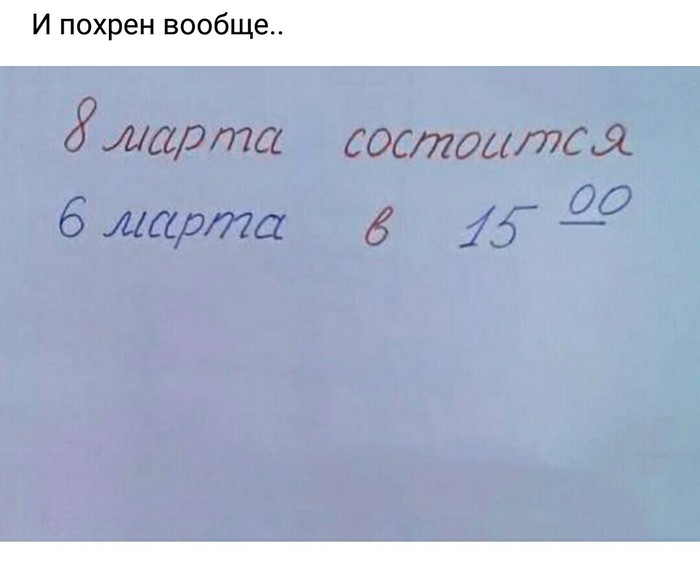 И похрен вообще..
8 марта состоится
6 марта в 15 00